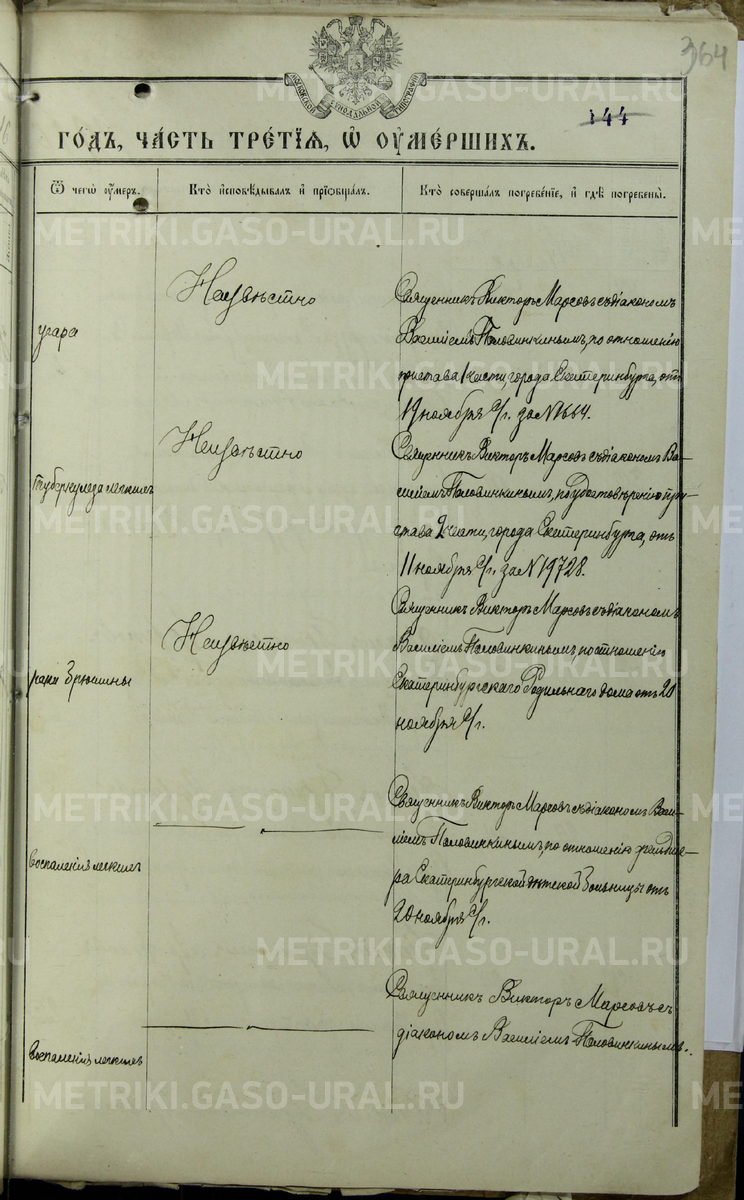 364
144
МОСКОВСКОЙ СѴНОДАЛЬНОЙ ТИПОГРАФІИ
ГО́ДЪ, ЧА́СТЬ ТРЕ́ТІѦ, Ѡ҆ ОУ҆МЕ́РШИХЪ.
Ѿ чегѡ̀ оу҆́меръ.
Кто̀ и҆сповѣ́дывалъ и҆ прїѡбща́лъ.
Кто̀ соверша́лъ погребе́нїе, и҆ гдѣ̀ погребены̀.
угара
Неизвѣстно
Священникъ Викторъ Марсовъ съ діакономъ
Василіемъ Половинкинымъ, по отношенію
пристава 1 части, города Екатеринбурга, отъ
19 ноября с/г. за № 1664.
туберкулеза легкихъ
Неизвѣстно
Священникъ Викторъ Марсовъ съ діакономъ Ва-
силіемъ Половинкинымъ, по удостовѣренію при-
става 2 части, города Екатеринбурга, отъ
11 ноября с/г. за № 19728.
рака брюшины
Неизвѣстно
Священникъ Викторъ Марсовъ съ діакономъ
Василіемъ Половинкинымъ, по отношенію
Екатеринбургскаго Родильнаго дома отъ 20
ноября с/г.
воспаленія легкихъ
Священникъ Викторъ Марсовъ съ діакономъ Васи-
ліемъ Половинкинымъ, по отношенію фельдше-
ра Екатеринбургской дѣтской больницы отъ
20 ноября с/г.
воспаленія легкихъ
Священникъ Викторъ Марсовъ съ
діакономъ Василіемъ Половинкинымъ.
METRIKI.GASO-URAL.RU